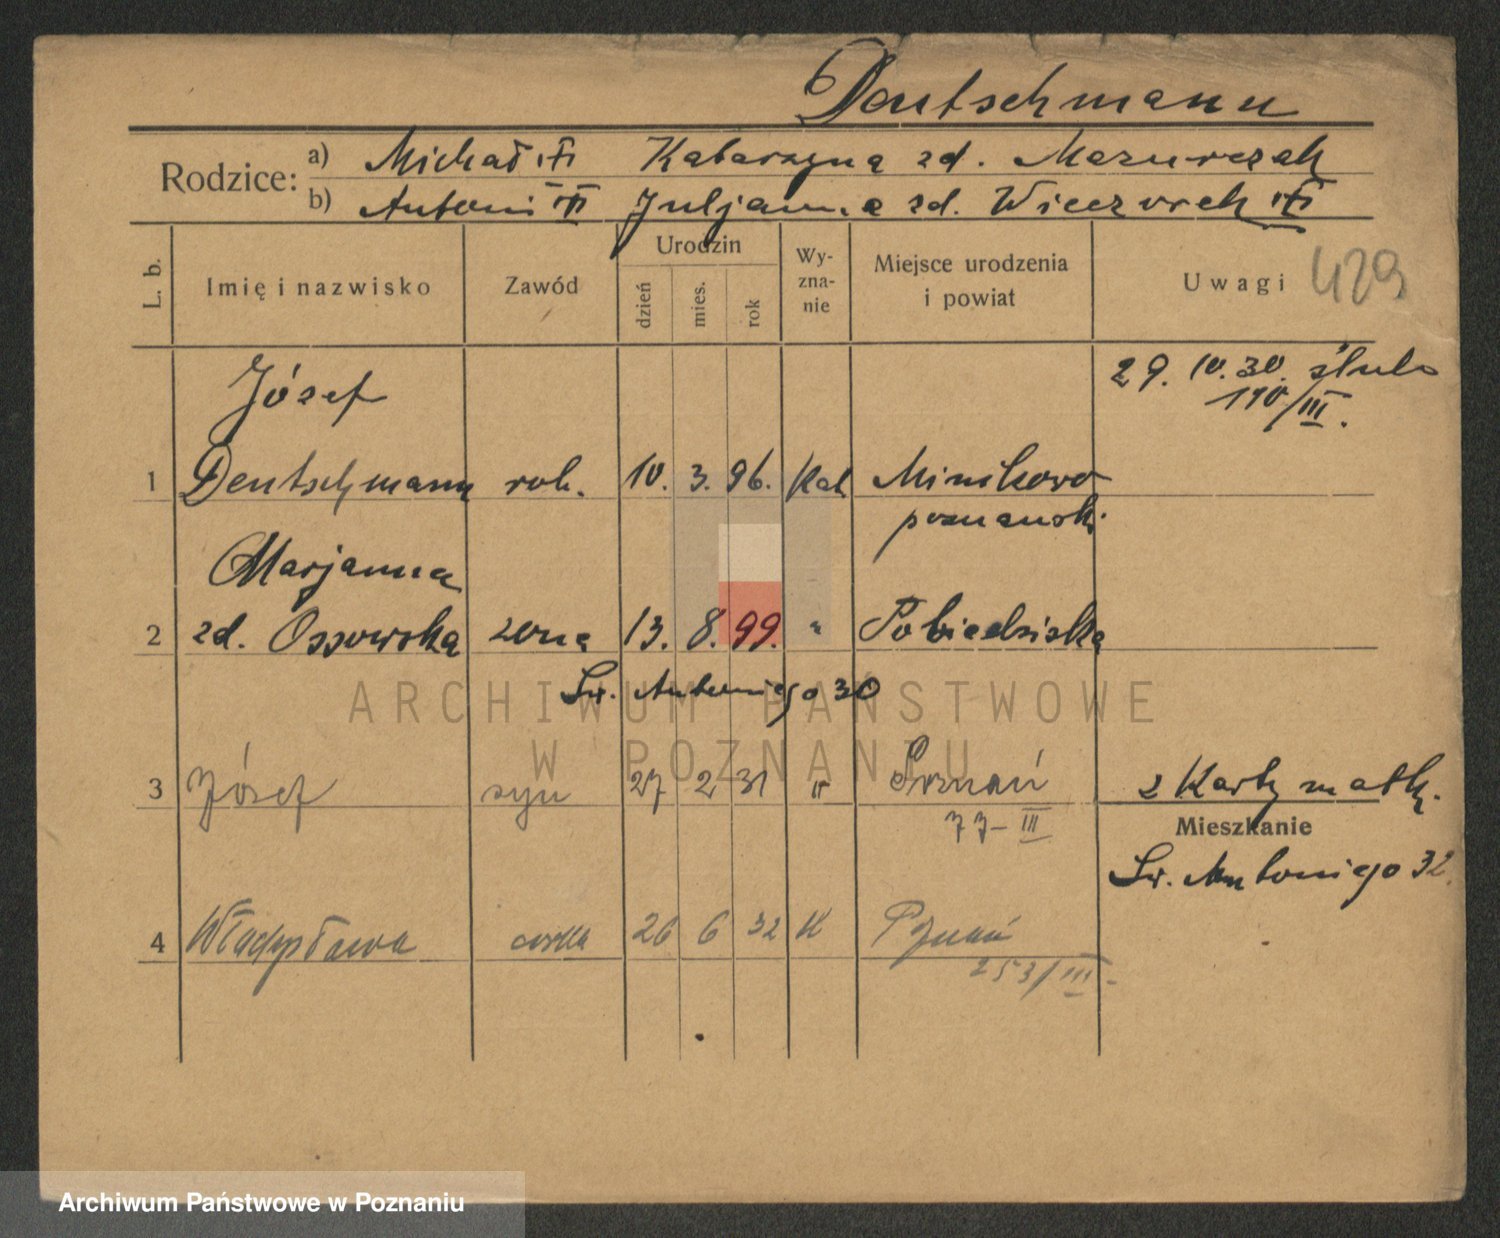 Deutschmann
Rodzice: a) Michał Katarzyna zd. Mazurczak
b) Antoni Juljanna zd. Wieczorek
L. b. Imię i nazwisko Zawód Urodzin dzień mies. rok Wyznanie Miejsce urodzenia i powiat Uwagi 429
Józef 29. 10. 30. ślub
190/III.
1 Deutschmann rob. 10. 3. 96. Kat Minikowo
poznansk.
Marjanna
2 zd. Ossowska żona 13. 8. 99. " Pobiedziska
Św. Antoniego 30
ARCHIWUM PAŃSTWOWE
W POZNANIU
3 Józef syn 27 2 31 " Poznań 2 Karty matk.
77-III
Mieszkanie
Św. Antoniego 32.
4 Władysława córka 26 6 32 K Poznań
253/III-
Archiwum Państwowe w Poznaniu